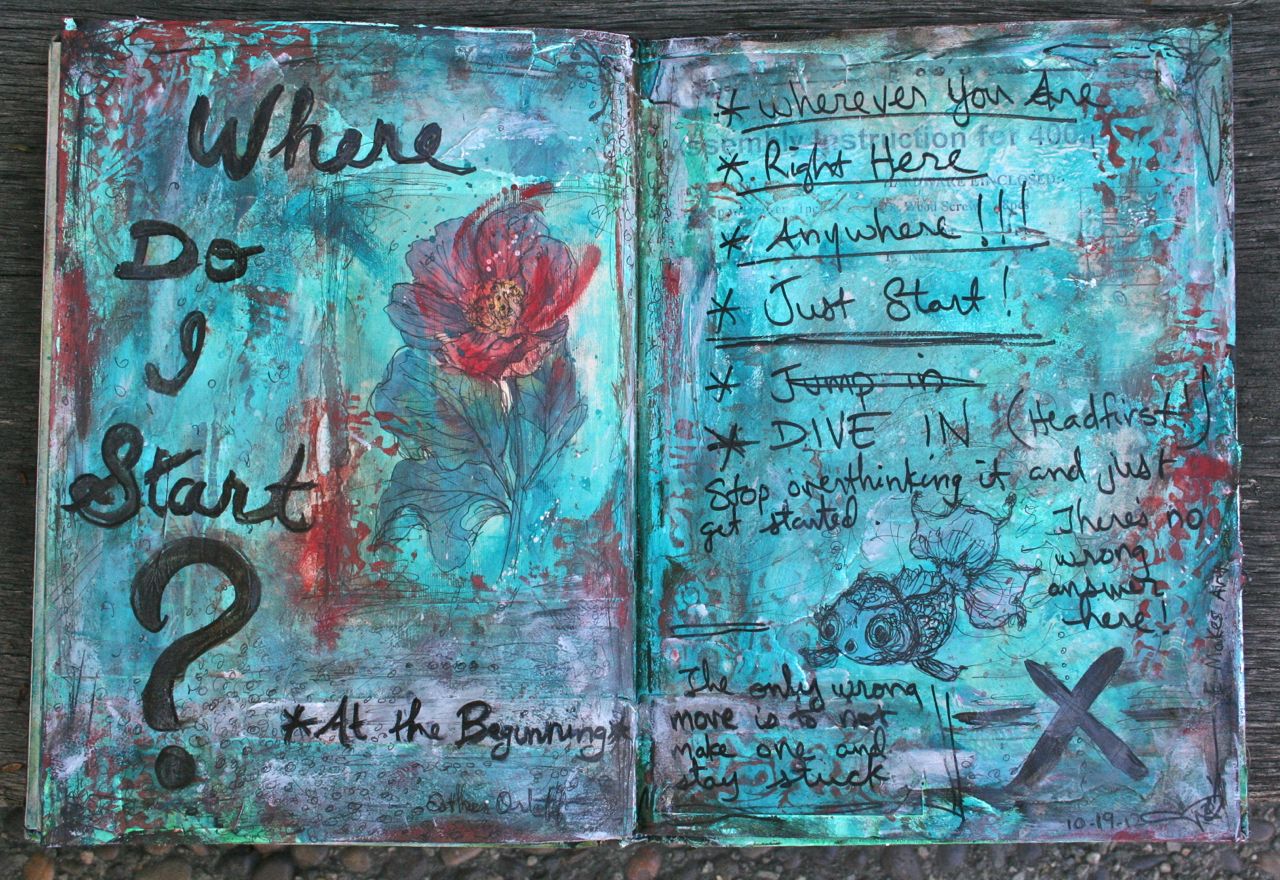 Where
Do
I
Start
?
*At the Beginning*
* Wherever You Are
Assembly Instruction for 400
* Right Here
HARDWARE ENCLOSED:
Wood Screw
* Anywhere!!!
* Just Start!
* Jump in
* DIVE IN (Headfirst)
Stop overthinking it and just
get started.
There's no
wrong
answer
here!
The only wrong
move is to not
make one and
stay stuck
X
Makes Art
10.19.1